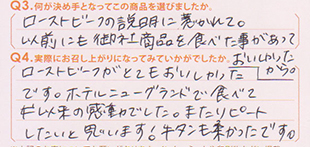 Q3.何が決め手となってこの商品を選びましたか。
ローストビーフの説明に惹かれて。
以前にも御社商品を食べた事があって
おいしかった
から。
Q4.実際にお召し上がりになってみていかがでしたか。
ローストビーフがとてもおいしかった
です。ホテルニューグランドで食べて
以来の感激でした。またリピート
したいと思います。牛タンも柔かったです。